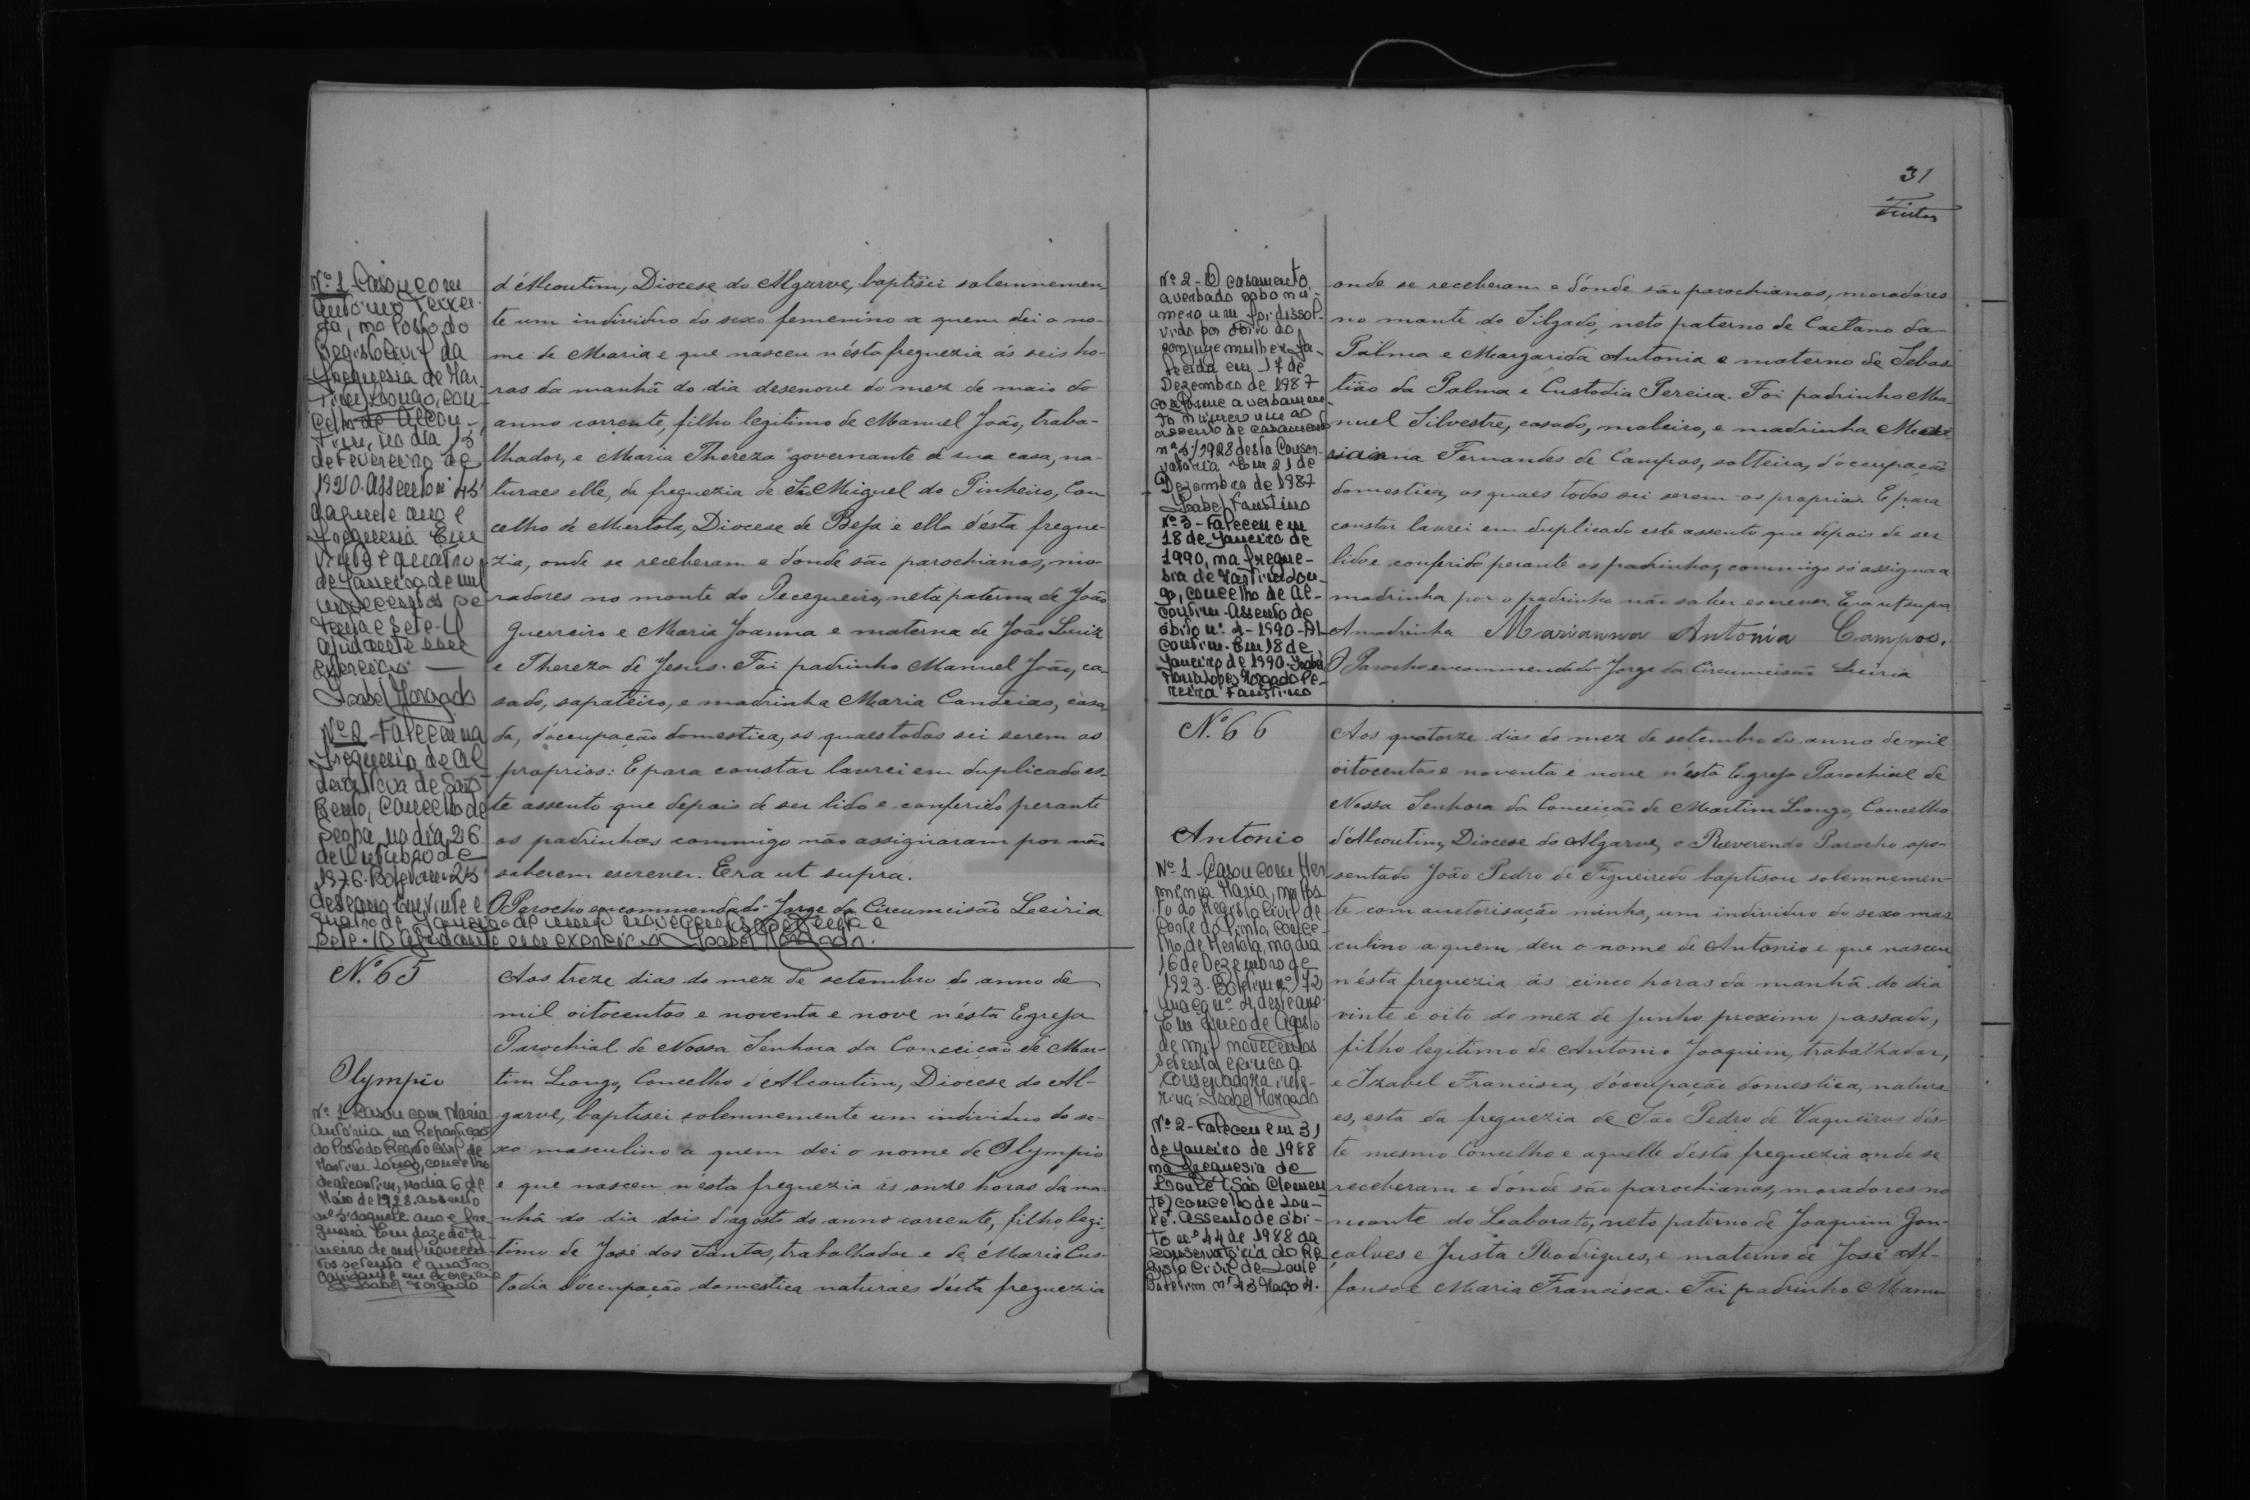 Nº 1 - Casou com
Antonio Teixei-
ra, no Posto do
Registo Civil da
freguesia de Mar-
tim Longo, con-
celho de Alcou-
tim, no dia 15
de Fevereiro de
1920. Assento nº 45
daquele ano e
freguesia. Em
vinte e quatro
de Janeiro de mil
novecentos se-
tenta e sete. O
ajudante em
exercício
Isabel Morgado
Nº 2 - Faleceu na
freguesia de Al
deia Nova de São
Bento, concelho de
Serpa, no dia 26
de Outubro de
1976. Boletim 25
deste ano. Em vinte e
quatro de Janeiro de mil novecentos setenta e
sete. O ajudante em exercício Isabel Morgado.
d'Alcoutim, Diocese do Algarve, baptisei solemnemen
te um individuo do sexo femenino a quem dei o no-
me de Maria e que nasceu n'ésta freguezia ás seis ho-
ras da manhã do dia desenove do mez de maio do
anno corrente, filho legitimo de Manuel João, traba-
lhador, e Maria Thereza governante de sua casa, na-
turaes elle, da freguezia de S. Miguel do Pinheiro, Con
celho de Mertola, Diocese de Beja e ella d'ésta fregue-
zia, onde se receberam e d'onde são parochianos, mo-
radores no monte do Pecegueiro, neta paterna de João
Guerreiro e Maria Joanna e materna de João Luiz
e Thereza de Jesus. Foi padrinho Manuel João, ca-
sado, sapateiro, e madrinha Maria Candeias, casa
da, d'occupação domestica, os quaes todos sei serem os
proprios: E para constar lavrei em duplicado es-
te assento que depois de ser lido e conferido perante
os padrinhos commigo não assignaram por não
saberem escrever. Era ut supra.
O Parocho encommendado Jorge da Circumcisão Leiria
N.º 65
Olympio
Nº 1 - Casou com Maria
Antónia na Repartição
do Posto do Registo Civil de
Martim Longo, concelho
de Alcoutim, no dia 6 de
Maio de 1928. Assento
nº 5 daquele ano e fre
guesia. Em doze de Ja-
neiro de mil novecen-
tos setenta e quatro
O ajudante em exercício
Isabel Morgado
Aos treze dias do mez de setembro do anno de
mil oitocentos e noventa e nove n'ésta Egreja
Parochial de Nossa Senhora da Conceição de Mar-
tim Longo, Concelho d'Alcoutim, Diocese do Al-
garve, baptisei solemnemente um individuo do se-
xo masculino a quem dei o nome de Olympio
e que nasceu n'esta freguezia ás onze horas da ma-
nhã do dia dois d'agosto do anno corrente, filho legi-
timo de José dos Santos, trabalhador e de Maria Cus-
todia d'occupação domestica naturaes d'ésta freguezia
31
Nº 2 - O casamento
averbado sob o nú-
mero um foi dissol-
vido por óbito do
conjuge mulher fa-
lecida em 17 de
Dezembro de 1987
conforme averbamen-
to número um ao
assento de casamento
nº 5/1928 desta Conser-
vatória. Em 21 de
Dezembro de 1987
Isabel Faustino
Nº 3 - Faleceu em
18 de Janeiro de
1990, na fregue-
sia de Martim Lon-
go, concelho de Al-
coutim. Assento de
óbito nº 2 - 1990 - Al
coutim. Em 18 de
Janeiro de 1990. Isabel
Maria Lopes Morgado Pe-
reira Faustino
onde se receberam e d'onde são parochianos, moradores
no monte do Silgado, neto paterno de Caetano da
Palma e Margarida Antonia e materno de Sebas-
tião da Palma e Custodia Pereira. Foi padrinho Ma-
nuel Silvestre, casado, moleiro, e madrinha Ma
rianna Fernandes de Campos, solteira, d'occupação
domestica, os quaes todos sei serem os proprios. E para
constar lavrei em duplicado este assento que depois de ser
lido e conferido perante os padrinhos, commigo só assigna a
madrinha por o padrinho não saber escrever. Era ut supra.
A madrinha Marianna Antonia Campos.
O Parocho encommendado Jorge da Circumcisão Leiria
N.º 66
Antonio
Nº 1 - Casou com Her
menia Maria, no Pos-
to do Registo Civil de
Corte do Pinto, conce-
lho de Mertola, no dia
16 de Dezembro de
1923. Boletim nº 172
maço nº 4 deste ano.
Em cinco de Agosto
de mil novecentos
setenta e cinco. A
Conservadora inte-
rina Isabel Morgado
Nº 2 - Faleceu em 31
de Janeiro de 1988
na freguesia de
Loulé (São Clemen
te) concelho de Lou-
lé. Assento de óbi-
to nº 44 de 1988 da
Conservatória do Re
gisto Civil de Loulé
Boletim nº 13 Maço 4.
Aos quatorze dias do mez de setembro do anno de mil
oitocentos e noventa e nove n'ésta Egreja Parochial de
Nossa Senhora da Conceição de Martim Longo, Concelho
d'Alcoutim, Diocese do Algarve, o Reverendo Parocho apo-
sentado João Pedro de Figueiredo baptisou solemnemen-
te com auctorisação minha, um individuo do sexo mas
culino a quem deu o nome de Antonio e que nasceu
n'ésta freguezia ás cinco horas da manhã do dia
vinte e oito do mez de junho proximo passado,
filho legitimo de Antonio Joaquim, trabalhador,
e Izabel Francisca, d'occupação domestica, natura
es, esta da freguezia de São Pedro de Vaqueiros d'és-
te mesmo Concelho e aquelle d'ésta freguezia onde se
receberam e d'onde são parochianos, moradores no
monte do Laborato, neto paterno de Joaquim Gon-
çalves e Justa Rodrigues, e materno de José Af-
fonso e Maria Francisca. Foi padrinho Manu